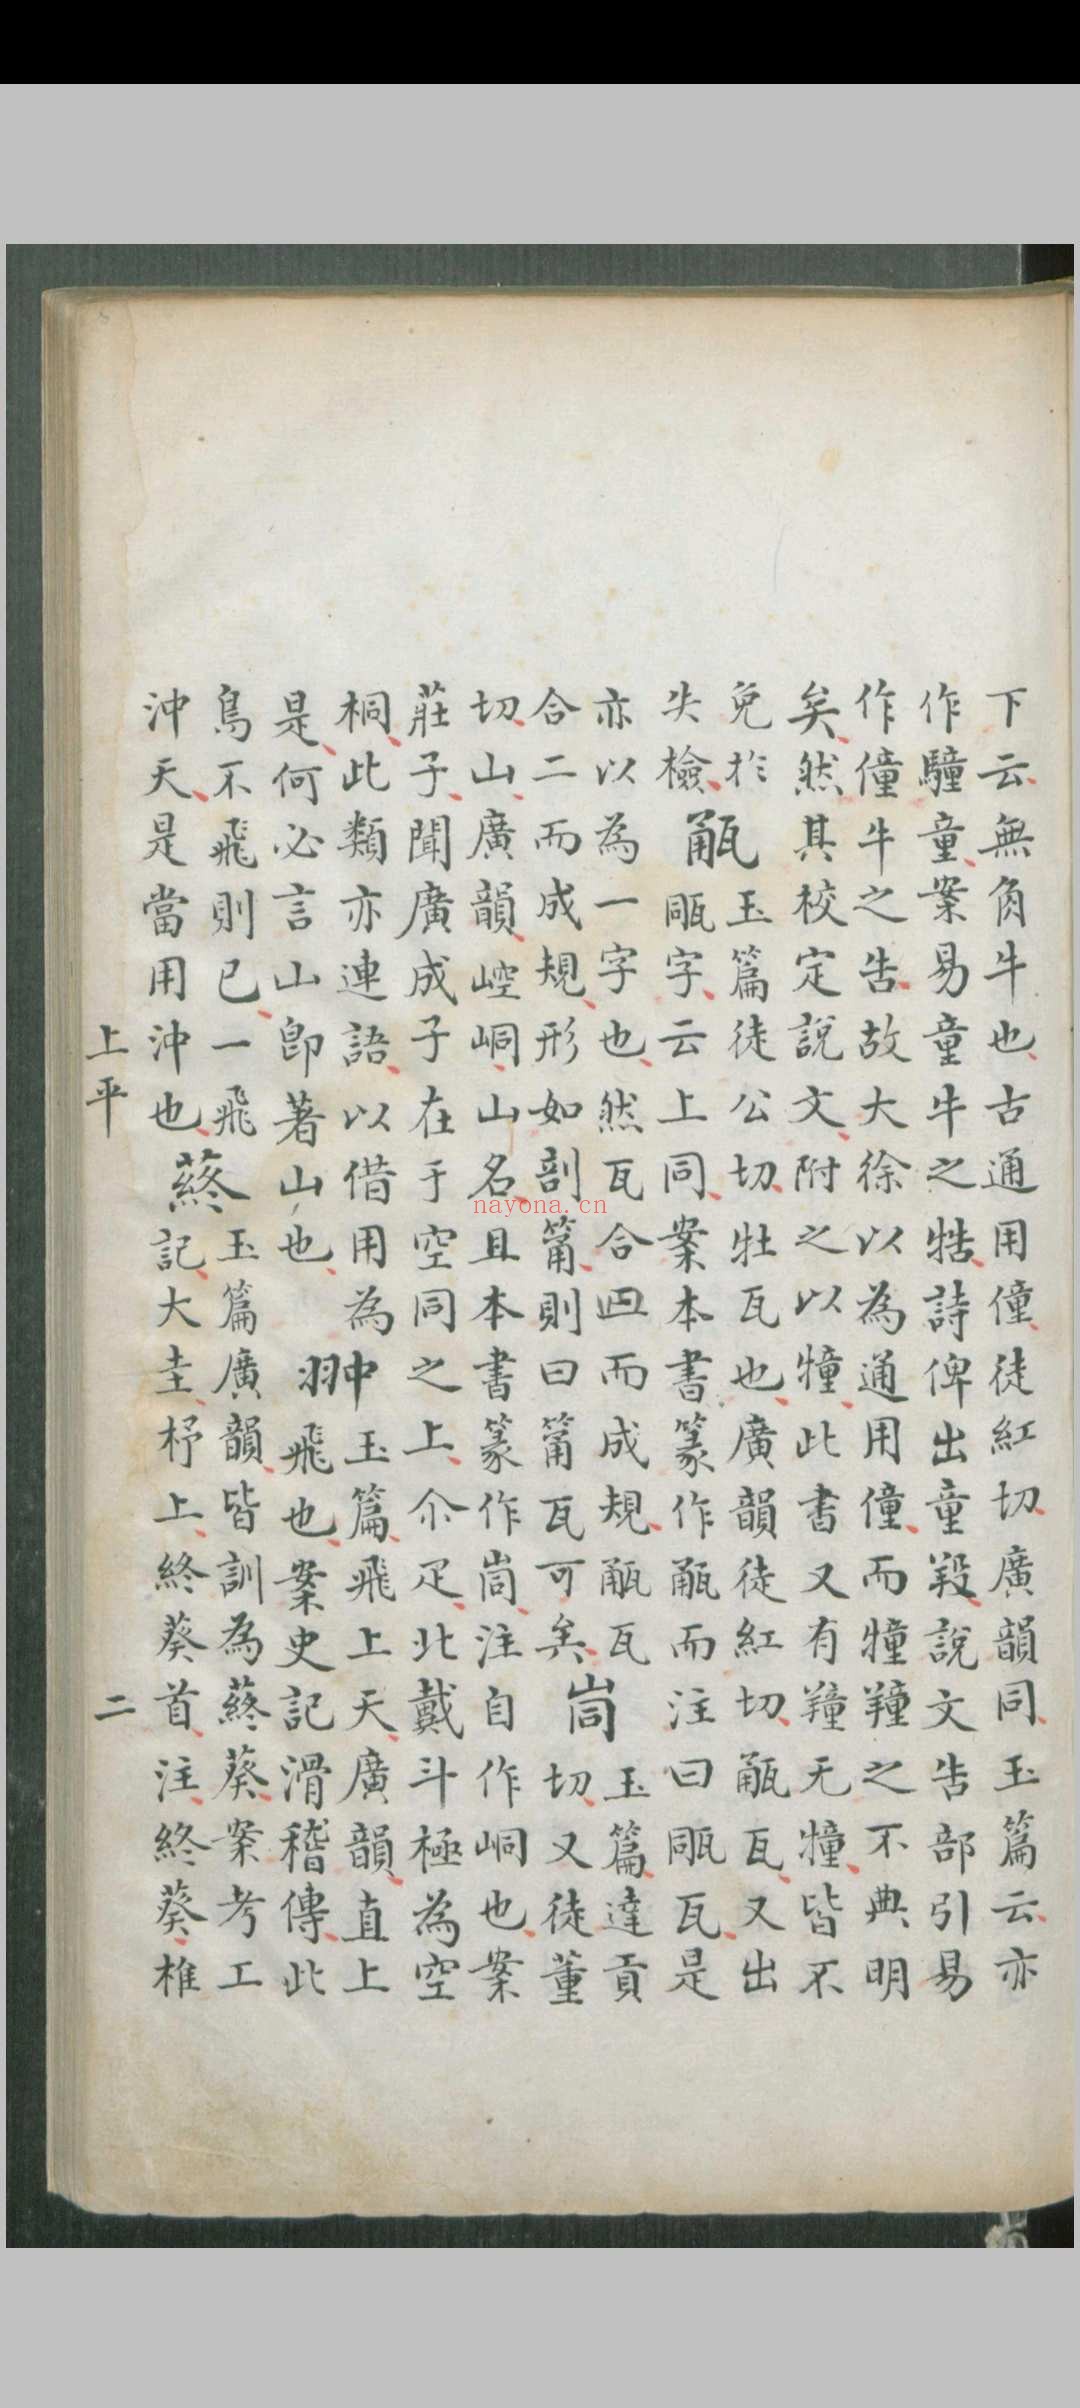 下云無角牛也古通用僮徒紅切廣韻同玉篇云亦
作驒童案易童牛之牿詩俾出童羖說文告部引易
作僮牛之告故大徐以為通用僮而犝羵之不典明
矣然其校定說文附之以犝此書又有羵无犝皆不
免於
失檢
㼧
玉篇徒公切牡瓦也廣韻徒紅切㼧瓦又出
㼧字云上同案本書篆作㼧而注曰㼧瓦是
亦以為一字也然瓦合四而成規㼧瓦
合二而成規形如剖筩則曰筩瓦可矣
峝
玉篇達貢
切又徒董
切山廣韻崆峒山名且本書篆作峝注自作峒也案
莊子聞廣成子在于空同之上尒疋北戴斗極為空
桐此類亦連語以借用為
是何必言山卽著山也
翀
玉篇飛上天廣韻直上
飛也案史記滑稽傳此
鳥不飛則已一飛
沖天是當用沖也
蔠
玉篇廣韻皆訓為蔠葵案考工
記大圭杼上終葵首注終葵椎
上平
二
nayona.cn